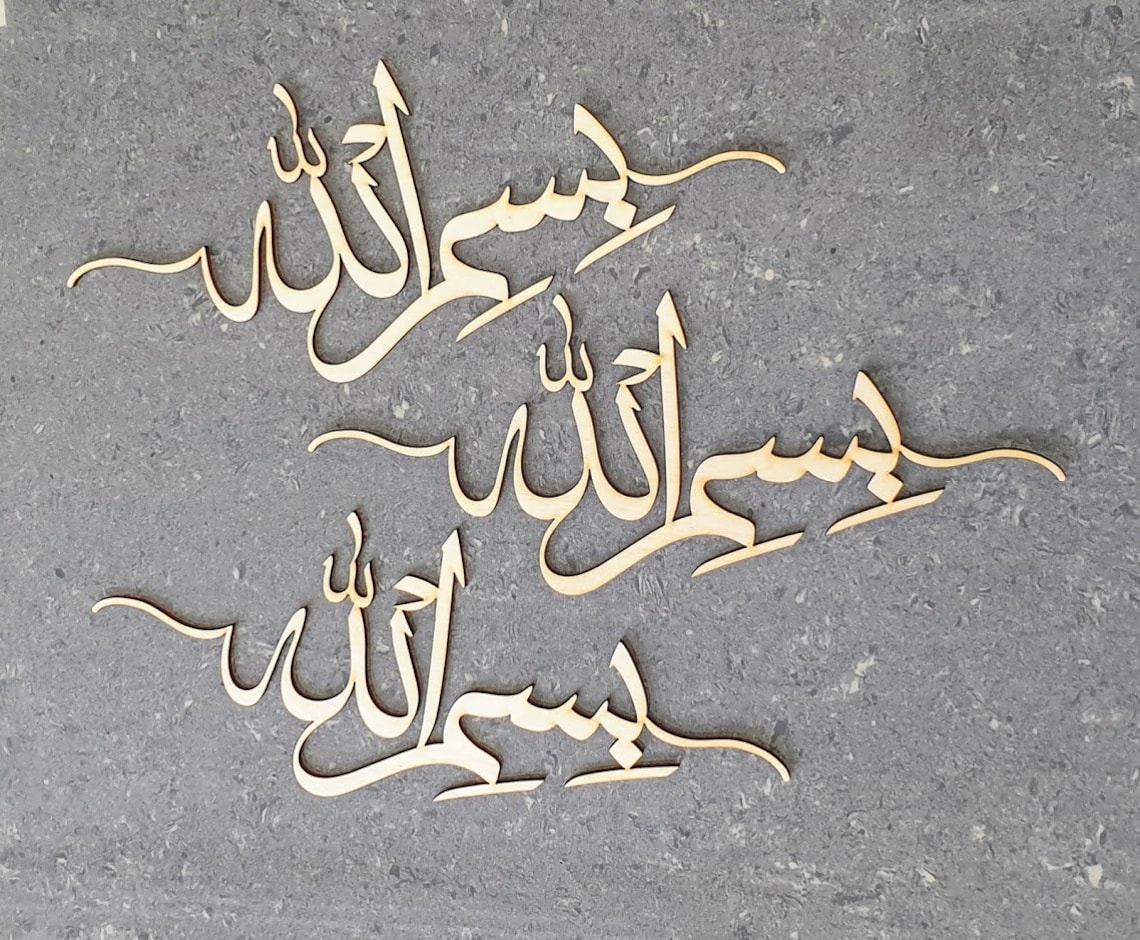 بِسْمِ اللّٰه
بِسْمِ اللّٰه
بِسْمِ اللّٰه